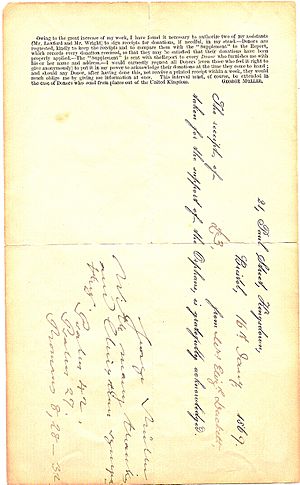 Owing to the great increase of my work, I have found it necessary to authorize two of my assistants
(Mr. Lawford and Mr. Wright), to sign receipts for donations, if needful, in my stead.—Donors are
requested, kindly to keep the receipts and to compare them with the "Supplement" to the Report,
which records every donation received, so that they may be satisfied that their donations have been
properly applied.—The "Supplement" is sent with the Report to every Donor who furnishes me with
his or her name and address.—I would earnestly request all Donors (even those who feel it right to
give anonymously) to put it in my power to acknowledge their donations at the time they come to hand;
and should any Donor, after having done this, not receive a printed receipt within a week, they would
much oblige me by giving me information, at once. This interval must, of course, be extended in
the case of Donors who send from places out of the United Kingdom. GEORGE MÜLLER.
21, Paul Street, Kingsdown,
Bristol, 16th Jany 1869.
The receipt, of £3 from Mrs
taken for the support of the Orphans, is gratefully acknowledged.
George Müller
With many thanks
and Christian
Psalm 42,
Psalm 27
Romans 8, 28—32